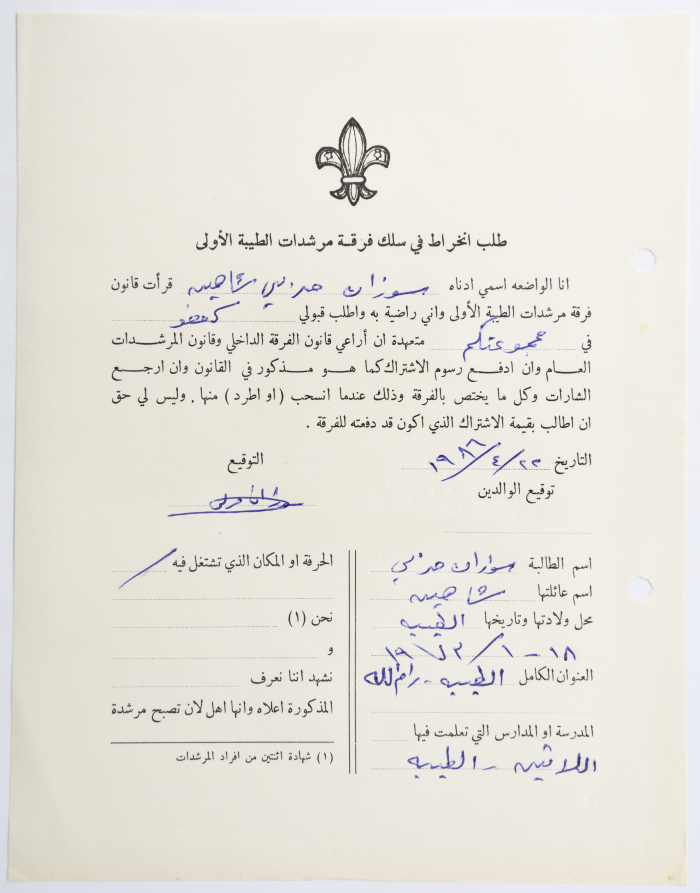 طلب انخراط في سلك فرقة مرشدات الطيبة الأولى
انا الواضعه اسمي ادناه سوزان حربي شاهين قرأت قانون
فرقة مرشدات الطيبة الأولى واني راضية به واطلب قبولي كعضو
في مجموعتكم متعهدة ان أراعي قانون الفرقة الداخلي وقانون المرشدات
العام وان ادفع رسوم الاشتراك كما هو مذكور في القانون وان ارجع
الشارات وكل ما يختص بالفرقة وذلك عندما انسحب (او اطرد) منها . وليس لي حق
ان اطالب بقيمة الاشتراك الذي اكون قد دفعته للفرقة .
التاريخ ٢٣/٤/١٩٨٦
التوقيع
توقيع الوالدين
اسم الطالبة سوزان حربي
اسم عائلتها شاهين
محل ولادتها وتاريخها الطيبه
١٨-١٠/
العنوان الكامل الطيبه - رام الله
المدرسة او المدارس التي تعلمت فيها
اللاتين - الطيبه
الحرفة او المكان الذي تشتغل فيه
نحن (١)
و
نشهد اننا نعرف
المذكورة اعلاه وانها اهل لان تصبح مرشدة
(١) شهادة اثنتين من افراد المرشدات